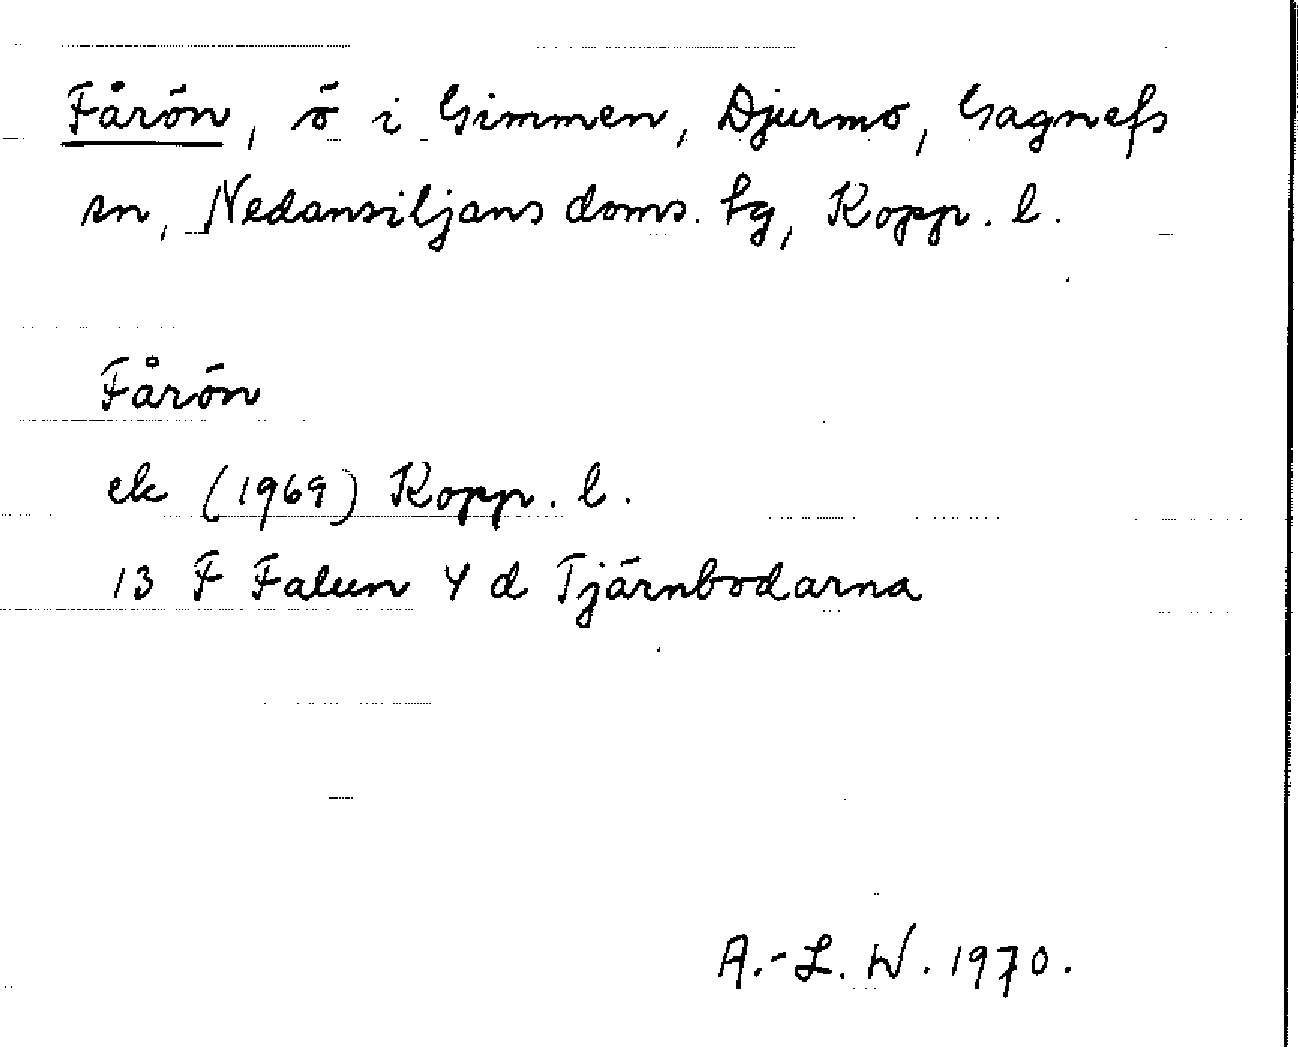 Fårön, ö i Gimmen, Djurmo, Gagnefs
sn, Nedansiljans doms. tg, Kopp. l.
Fårön
ek (1969) Kopp. l.
13 F Falun 4 d Tjärnbodarna
A.-L. W. 1970.